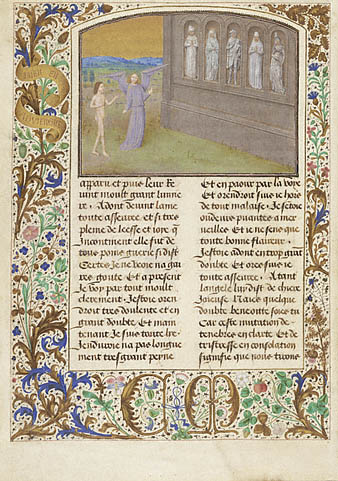 apparu et puis leur se
uint moult grant lumie
re. Adont deuint lame
toute asseuree et si tres
pleme de leesse et ioye q̄
Incontinent elle fut de
tous poins guerie Si dist
Certes Je ne scay na gai
res goute Et a present
Je voy par tout moult
clerement Jestoie oren
droit tres doulente et en
grant doubte Et main
tenant Je suis toute lie
Jenduroie na pas longue
ment tres grant peine
Et en paour par la voye
Et orendroit suis ie hors
de tout malaise Jestoie
ou de ces puantes a mer
ueilles Et ie ne sens que
toute bonne flaireur
Jestoie adont en trop grāt
doubte Et ores suis ie
toute asseuree Atant
langele luy dist de chiere
Joieuse Naies quelque
doubte benoitte soies tu
Car ceste mutation de
tenebres en clarte Et de
tristresse en consolation
signifie que nous tirons